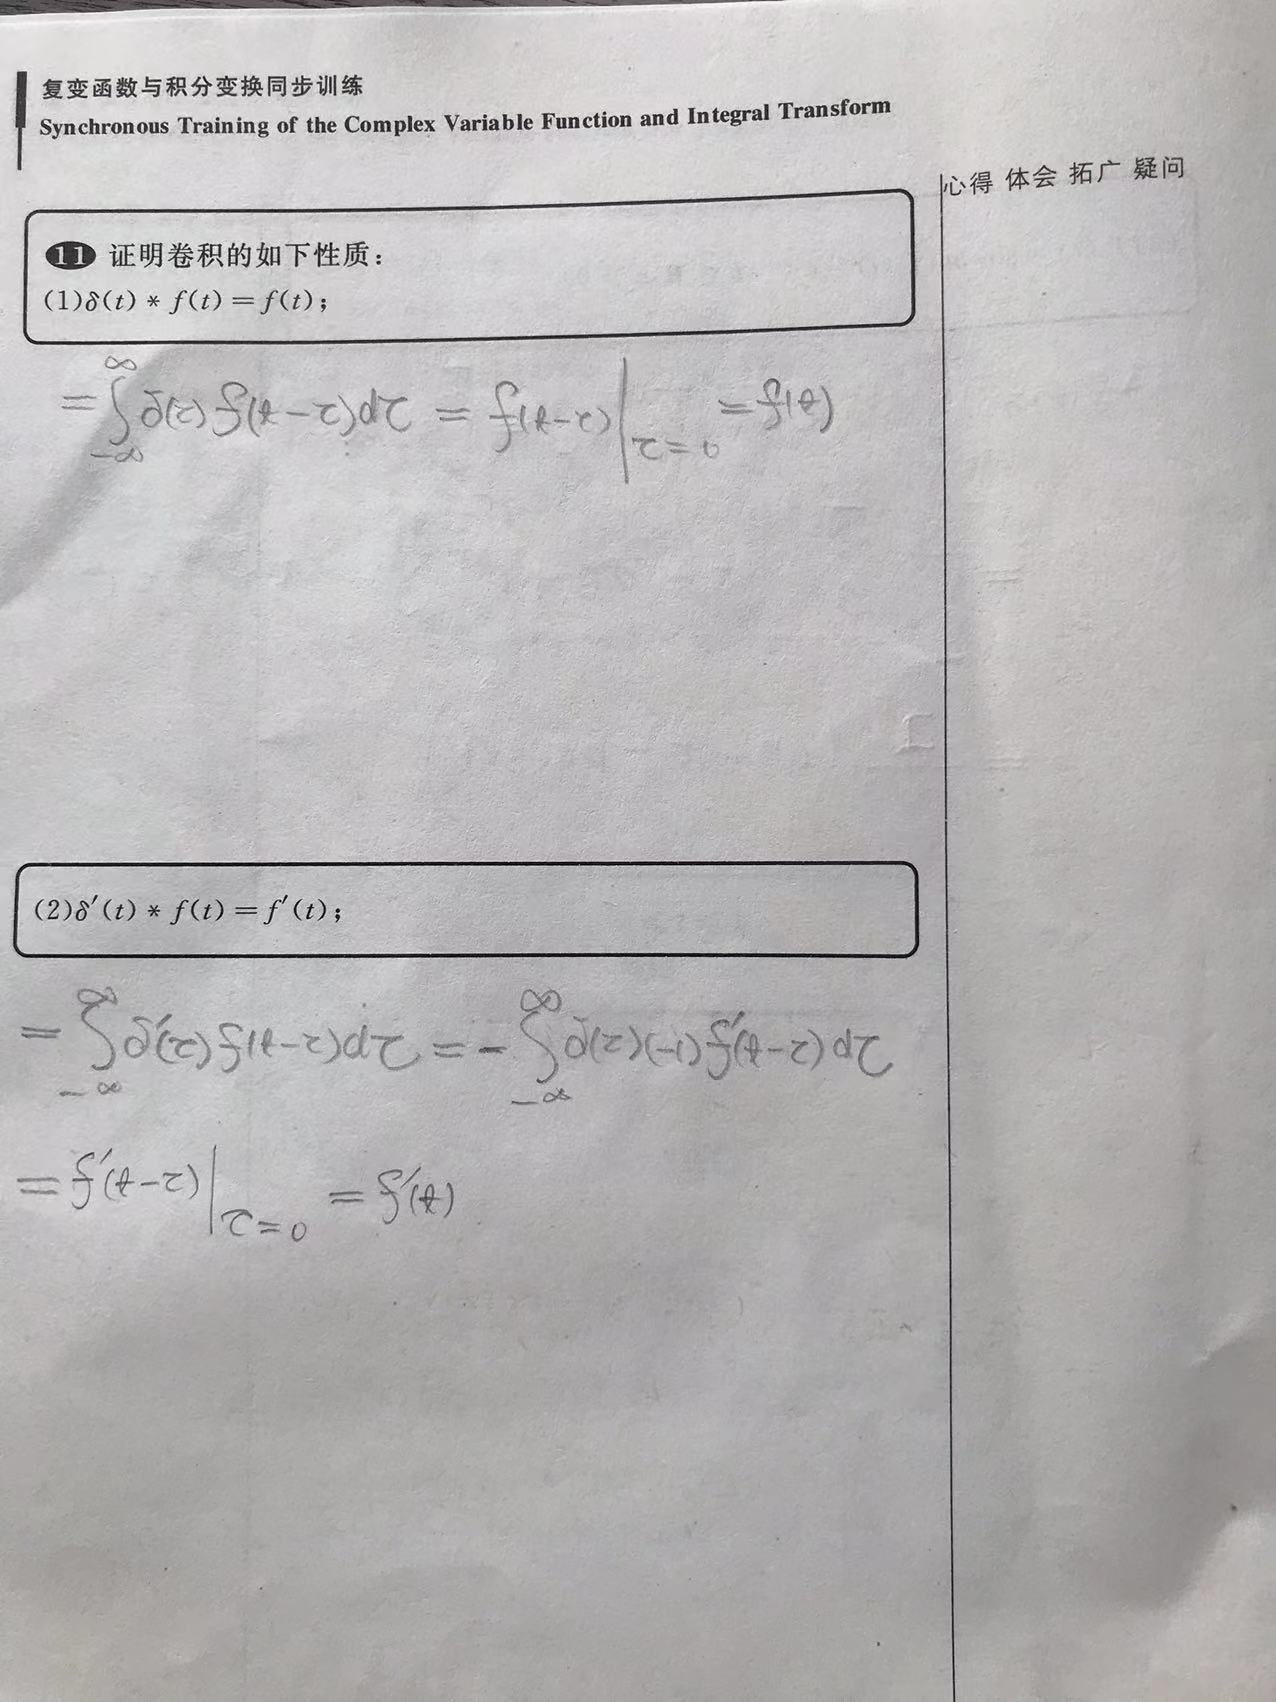 复变函数与积分变换同步训练
Synchronous Training of the Complex Variable Function and Integral Transform
心得 体会 拓广 疑问
11 证明卷积的如下性质：
(1)δ(t) * f(t) = f(t)；
= ∫_{-∞}^{∞} δ(τ) f(t-τ)dτ = f(t-τ)|_{τ=0} = f(t)
(2)δ′(t) * f(t) = f′(t)；
= ∫_{-∞}^{∞} δ′(τ) f(t-τ)dτ = - ∫_{-∞}^{∞} δ(τ)(-1) f′(t-τ) dτ
= f′(t-τ)|_{τ=0} = f′(t)